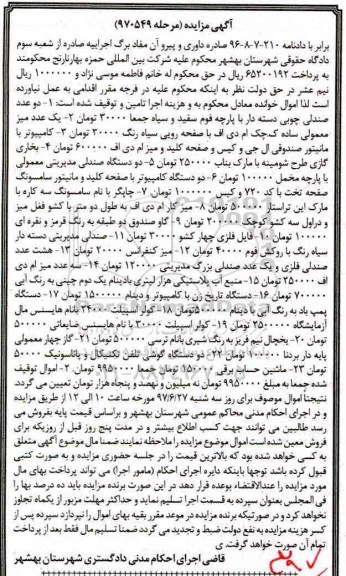 آگهی مزایده (مرحله ۹۷۰۵۴۹)
برابر با دادنامه ۲۱۰-۷-۸-۹۶ صادره داوری و پیرو آن مفاد برگ اجراییه صادره از شعبه سوم
دادگاه حقوقی شهرستان بهشهر محکوم علیه شرکت بین المللی حمزه بهارنارنج محکومند
به پرداخت ۶۵۲۰۰۱۹۲ ریال در حق محکوم له خانم فاطمه موسی نژاد و ۱۰۰۰۰۰۰ ریال
نیم عشر در حق دولت نظر به اینکه محکوم علیه در فرجه مقرر اقدامی به عمل نیاورده
است لذا اموال خوانده معادل محکوم به و هزینه اجرا تامین و توقیف شده است: ۱- دو عدد
صندلی چوبی دسته دار با پارچه فوم سفید و سیاه جمعا ۳۰۰۰۰ تومان ۲- یک عدد میز
معمولی ساده ک.چک ام دی اف با صفحه رویی سیاه رنگ ۳۰۰۰۰ تومان ۳- کامپیوتر با
مانیتور صندوقی ال جی و کیس و صفحه کلید و میز ام دی اف ۶۰۰۰۰۰ تومان ۴- بخاری
گازی طرح شومینه با مارک بناب ۲۵۰۰۰۰ تومان ۵- دو دستگاه صندلی مدیریتی معمولی
با پارچه مخمل ۱۰۰۰۰۰ تومان ۶- دو دستگاه کامپیوتر با صفحه کلید و مانیتور سامسونگ
صفحه تخت با کد ۷۲۰ و کیس ۱۰۰۰۰۰۰ تومان ۷- چاپگر با نام سامسونگ سه کاره با
مارک این تراستار ۵۰۰۰۰۰ تومان ۸- میز کار ام دی اف به طول دو متر با کشو قفل میز
و دراول سه کشو کوچک ۲۰۰۰۰۰ تومان ۹- گاو صندوق دو طبقه به رنگ قرمز و نقره ای
۱۰۰۰۰۰ تومان ۱۰- فایل فلزی چهار کشو ۳۰۰۰۰ تومان ۱۱- صندلی مدیریتی دسته دار
سیاه رنگ با روکش فوم ۴۰۰۰۰ تومان ۱۲- میز کنفرانس ۲۰۰۰۰ تومان ۱۳- هشت عدد
صندلی فلزی و یک عدد صندلی بزرگ مدیریتی ۱۲۰۰۰۰ تومان ۱۴- سه عدد میز ام دی
اف ۲۵۰۰۰۰ تومان ۱۵- منبع آب پلاستیکی هزار لیتری بادینام یک دوم چینی به رنگ آبی
۷۰۰۰۰۰ تومان ۱۶- دستگاه تاریخ زن با کامپیوتر و دینام ۱۵۰۰۰۰۰ تومان ۱۷- دستگاه
پمپ باد به رنگ آبی با دینام ۵۰۰۰۰۰ تومان ۱۸- کولر اسپیلت ۲۴۰۰۰ بانام هایسنس مال
آزمایشگاه ۲۵۰۰۰۰ تومان ۱۹- کولر اسپیلت ۳۰۰۰۰ با نام هایسنس ضایعاتی ۵۰۰۰۰۰
تومان ۲۰- یخچال نیم فریز به رنگ شیری بانام ترسی ۵۰۰۰۰۰ تومان ۲۱- گاز چهار معمولی
پایه دار بردنا ۱۰۰۰۰۰ تومان ۲۲- دو دستگاه گوشی تلفن تکنیکال و پاناسونیک ۵۰۰۰۰
تومان ۲۳- ماشین حساب برقی ۱۵۰۰۰۰ تومان جمعا ۹۹۵۰۰۰۰ تومان ۲- اموال توقیف
شده جمعا به مبلغ ۹۹۵۰۰۰۰ تومان نه میلیون و نهصد و پنجاه هزار تومان تعیین می گردد.
نتیجتا اموال موصوف برای روز سه شنبه ۹۷/۶/۲۷ مورخه ساعت ۱۰ الی ۱۲ از طریق مزایده
و در اجرای احکام مدنی محاکم عمومی شهرستان بهشهر و براساس قیمت پایه بفروش می
رسد طالبین می توانند جهت کسب اطلاع بیشتر و در مدت پنج روز قبل از روزیکه برای
فروش معین شده است اموال موضوع مزایده را ملاحظه نمایند ضمنا مال موضوع آگهی متعلق
به کسی خواهد شده بود که بالاترین قیمت را در جلسه حضوری مزایده و به صورت کتبی
قبول کرده باشد توجها باینکه دایره اجرای احکام (مامور اجرا) می تواند پرداخت بهای مال
مورد مزایده را عندالاقتضاء بوعده قرار دهد در این صورت برنده مزایده باید ده درصد بها را
فی المجلس بعنوان سپرده به قسمت اجرا تسلیم نماید و حداکثر مهلت مزبور از یکماه تجاوز
نخواهد کرد و در صورتیکه برنده مزایده در موعد مقرر بقیه بهای اموال را نپردازد سپرده پس از
کسر هزینه مزایده به نفع دولت ضبط و تجدید می گردد ضمنا تسلیم مال فقط بعد از پرداخت
تمام آن صورت خواهد گرفت. ی
قاضی اجرای احکام مدنی دادگستری شهرستان بهشهر